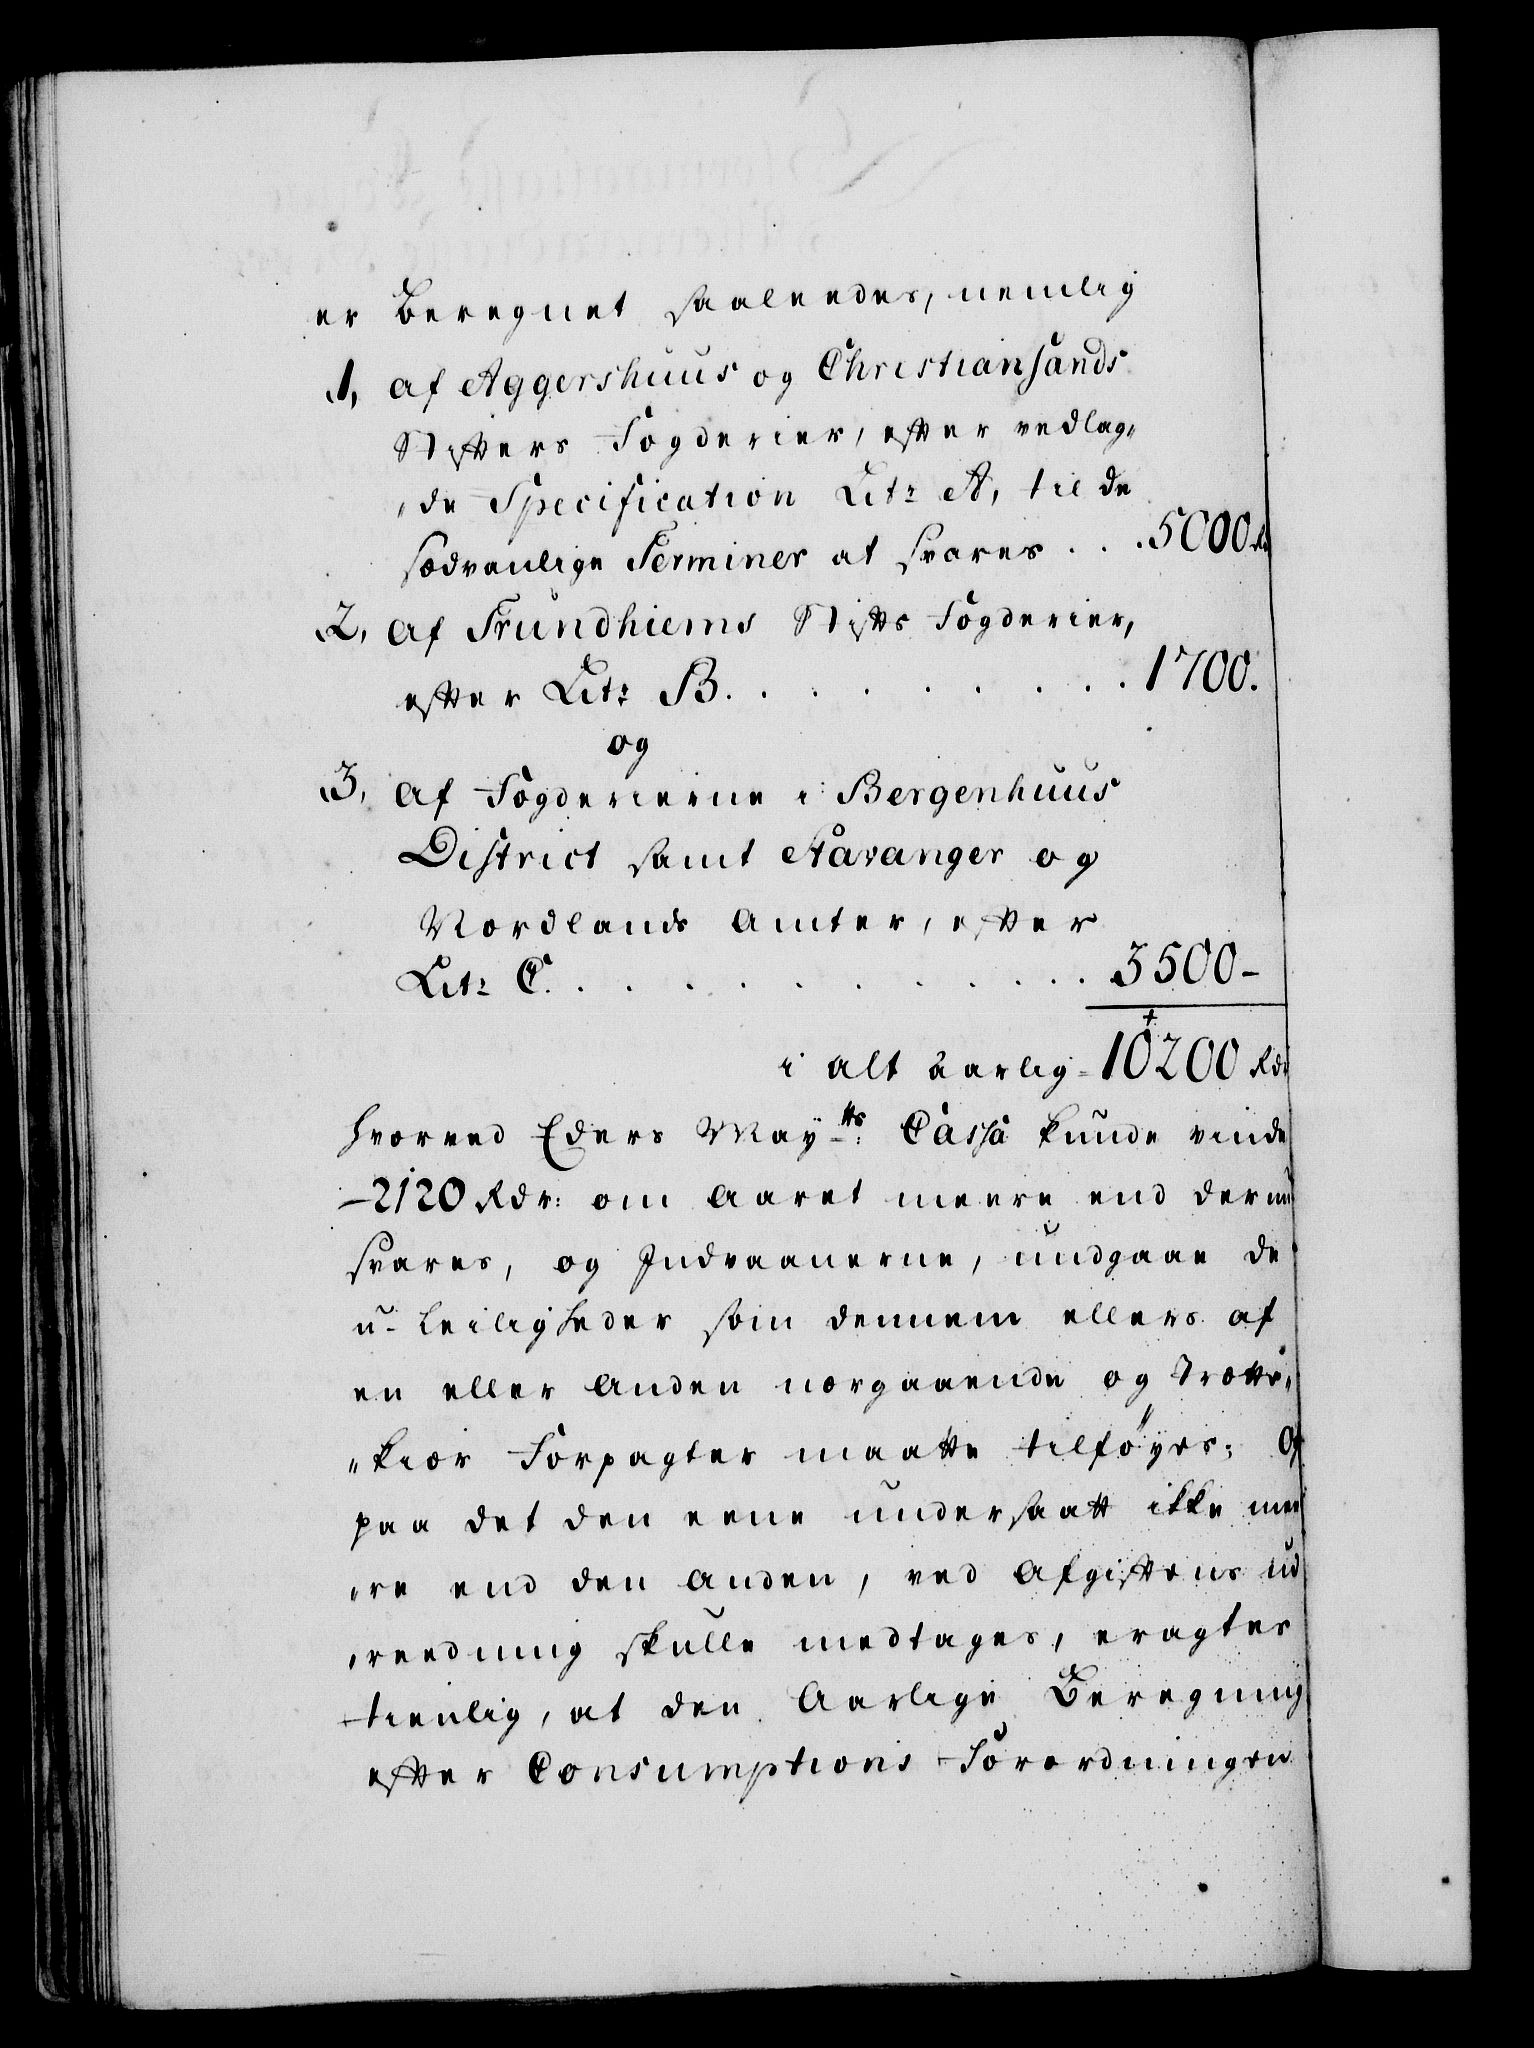 er Beregnet saaleedes, nemlig
1, af Aggershuus og Christiansands
Stifters Fogderier, efter vedlag„
„de Specification Litr A, til de
sædvanlige Terminer at svares . . . 5000 Rd
2, af Trundhiems Stifts Fogderier,
efter Litr B. . . . . . . . . 1700.
og
3, af Fogderierne i Bergenhuus
District samt Stavanger og
Nordlands Amter, efter
Litr C. . . . . . . . . . . 3500–
i alt aarlig = 10200 Rdr
hvorved Eders Mayts: Cassa kunde vinde
– 2120 Rdr: om Aaret meere end der nu
svares, og Indvaanerne, undgaae de
u-leiligheder som dennem ellers af
en eller anden nærgaaende og Trætte„
„kiær Forpagter maatte tilføyes; Og
paa det den eene undersaatt ikke mee
„re end den anden, ved Afgiftens ud
„reedning skulle medtages, eragtes
tienlig, at den Aarlige Beregning
efter Consumptions Forordningen